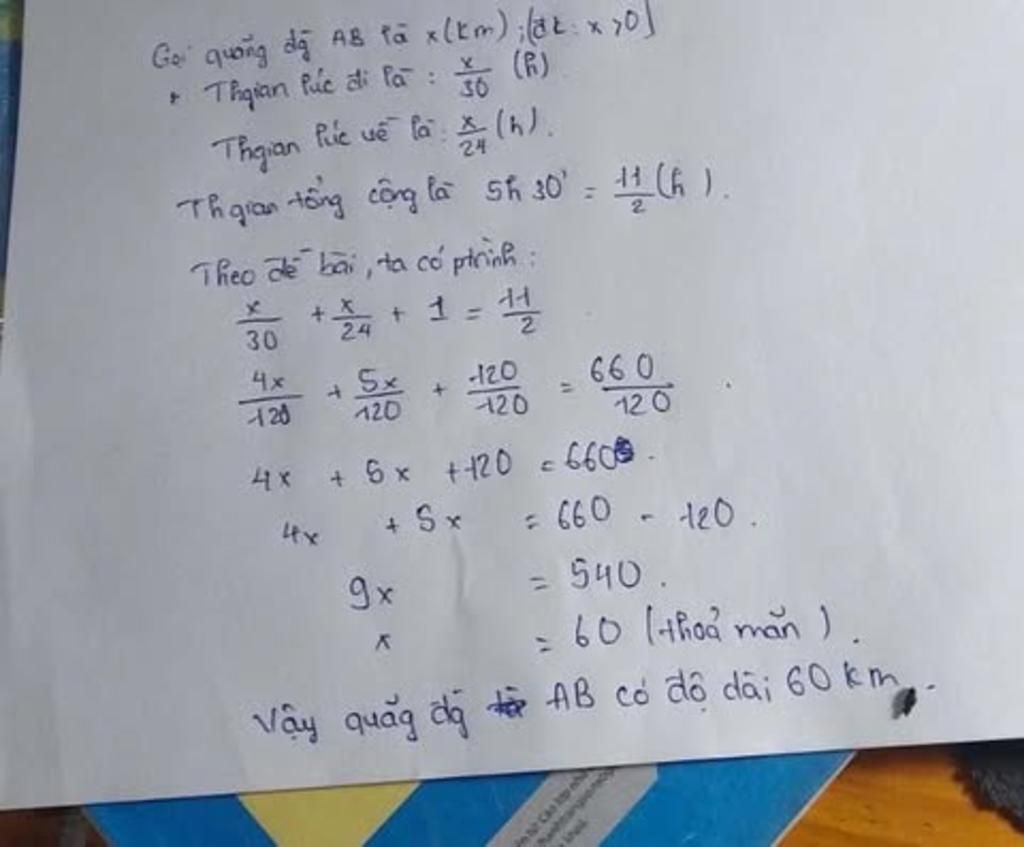 Gọi quãng dg̃ AB là x (km); (đk: x > 0)
+ Thgian lúc đi là: x/30 (h)
Thgian lúc về là: x/24 (h).
Thgian tổng cộng là 5h 30' = 11/2 (h).
Theo đề bài, ta có ptrình:
x/30 + x/24 + 1 = 11/2
4x/120 + 5x/120 + 120/120 = 660/120
4x + 5x + 120 = 660.
4x + 5x = 660 - 120.
9x = 540.
x = 60 (thoả mãn).
Vậy quãg dg̃ AB có độ dài 60 km.